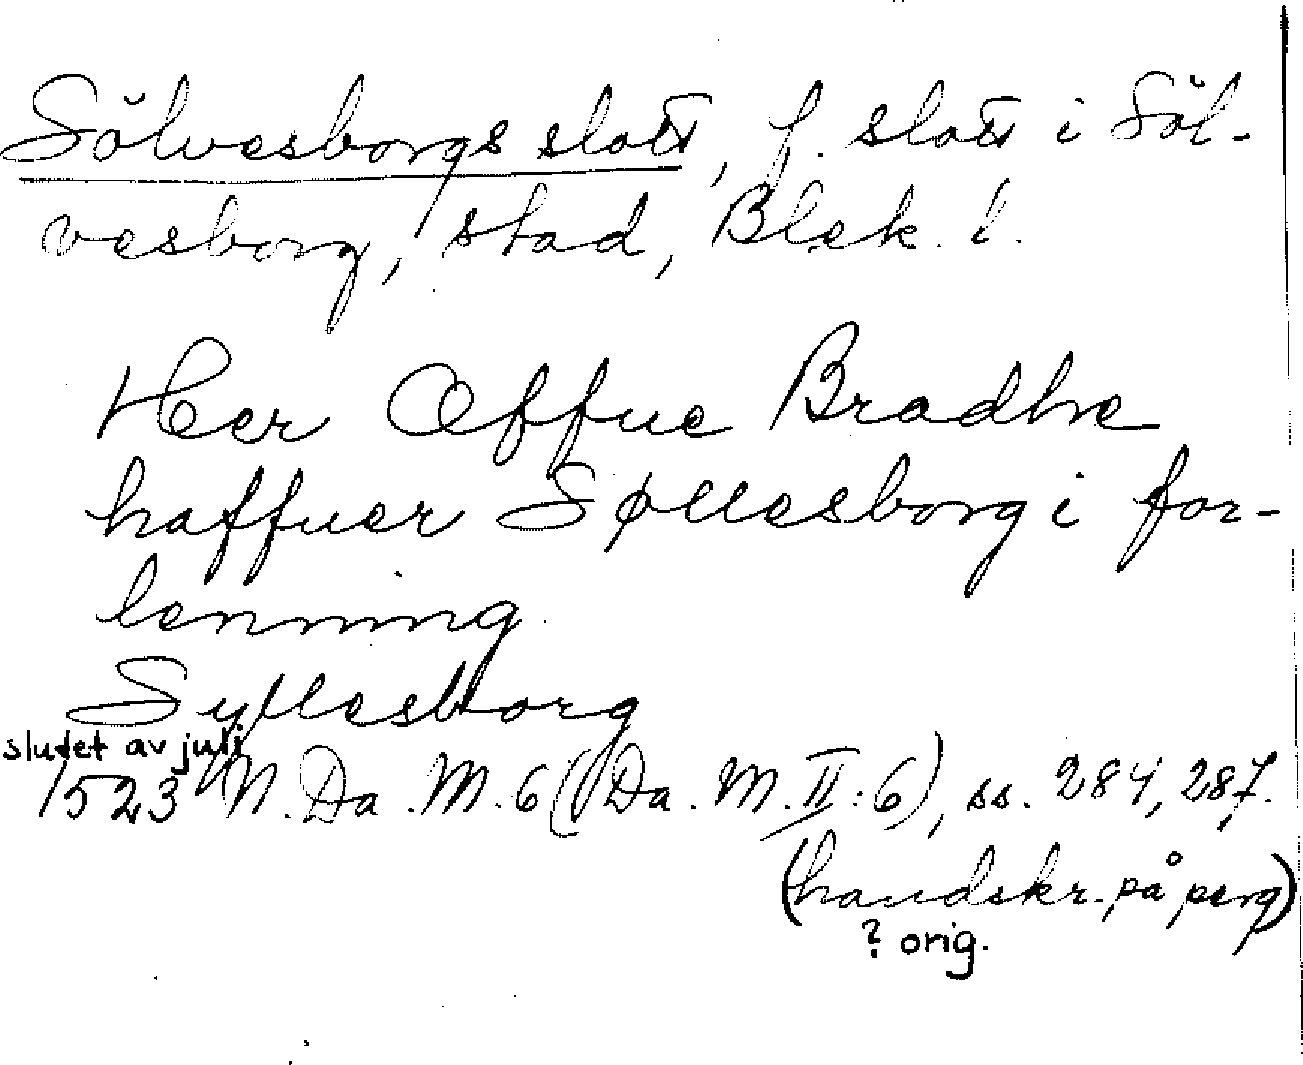 Sölvesborgs slott, f. slott i Söl-
vesborg, stad, Blek. l.
Her Offue Bradhe
haffuer Søllesborg i for-
lenning
Syllesborg
slutet av juli
1523 N. Da. M. 6 (Da. M. II: 6), ss. 284, 287.
(handskr. på perg)
? orig.